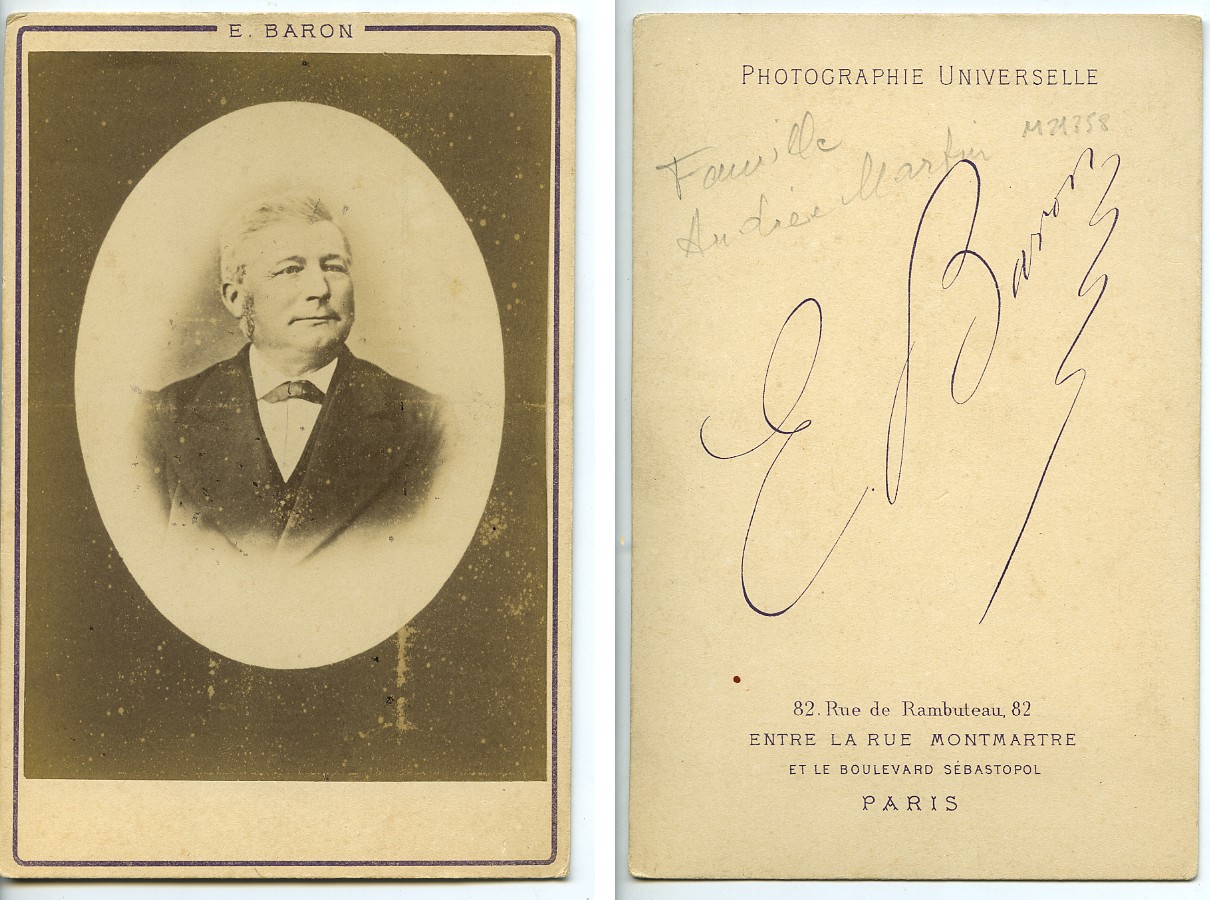 E. BARON
PHOTOGRAPHIE UNIVERSELLE
M21358
Famille
Andrieie Martin
E. Baron
82. Rue de Rambuteau, 82
ENTRE LA RUE MONTMARTRE
ET LE BOULEVARD SÉBASTOPOL
PARIS